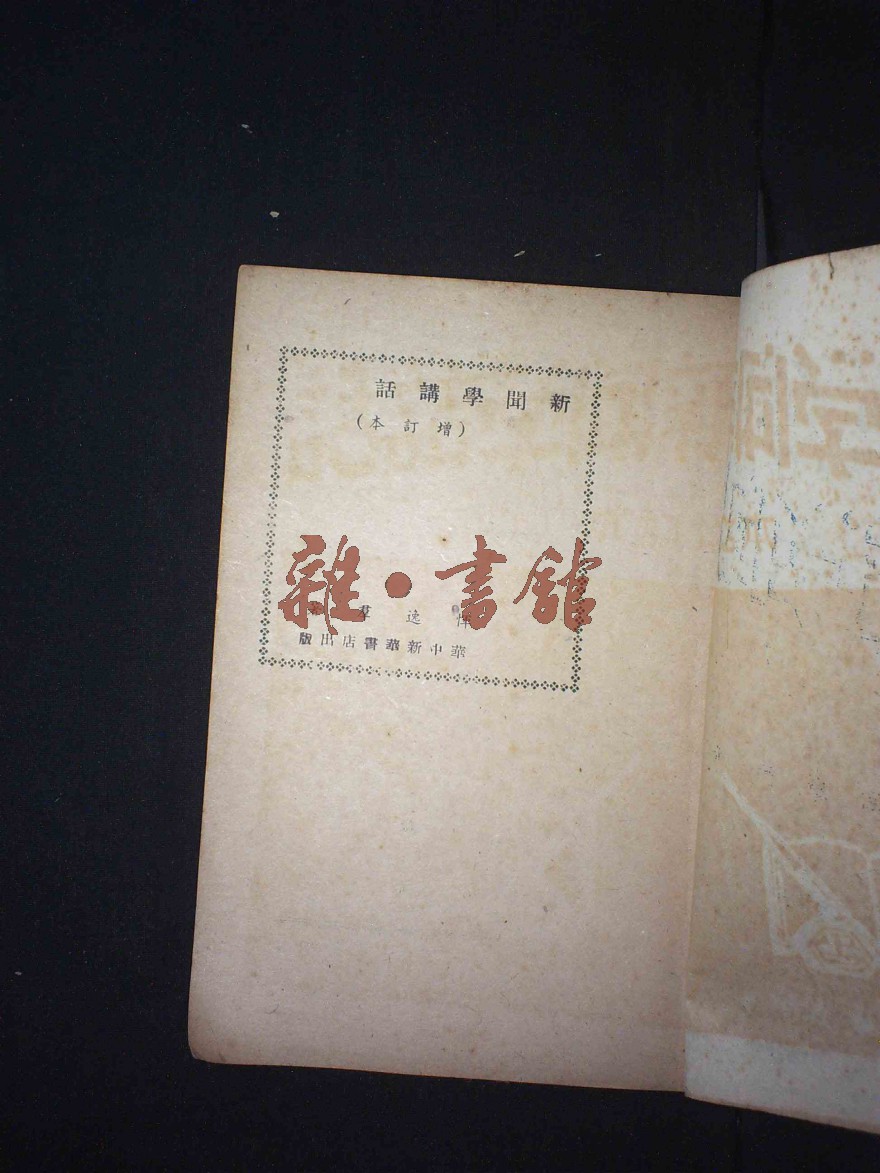 新聞學講話
（增訂本）
雜·書館
惲逸羣
華中新華書店出版